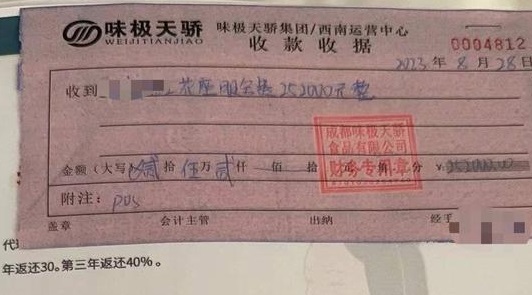 味极天骄
WEIJITIANJIAO
味极天骄集团/西南运营中心
收款收据
0004812
2023年8月28日
收到 252000元整
成都味极天骄
食品有限公司
财务专用章
金额(大写) 贰拾伍万贰仟 佰 拾 元 角 分 ¥:
附注: pos
盖章 会计主管 出纳 经手
年返还30。第三年返还40%。